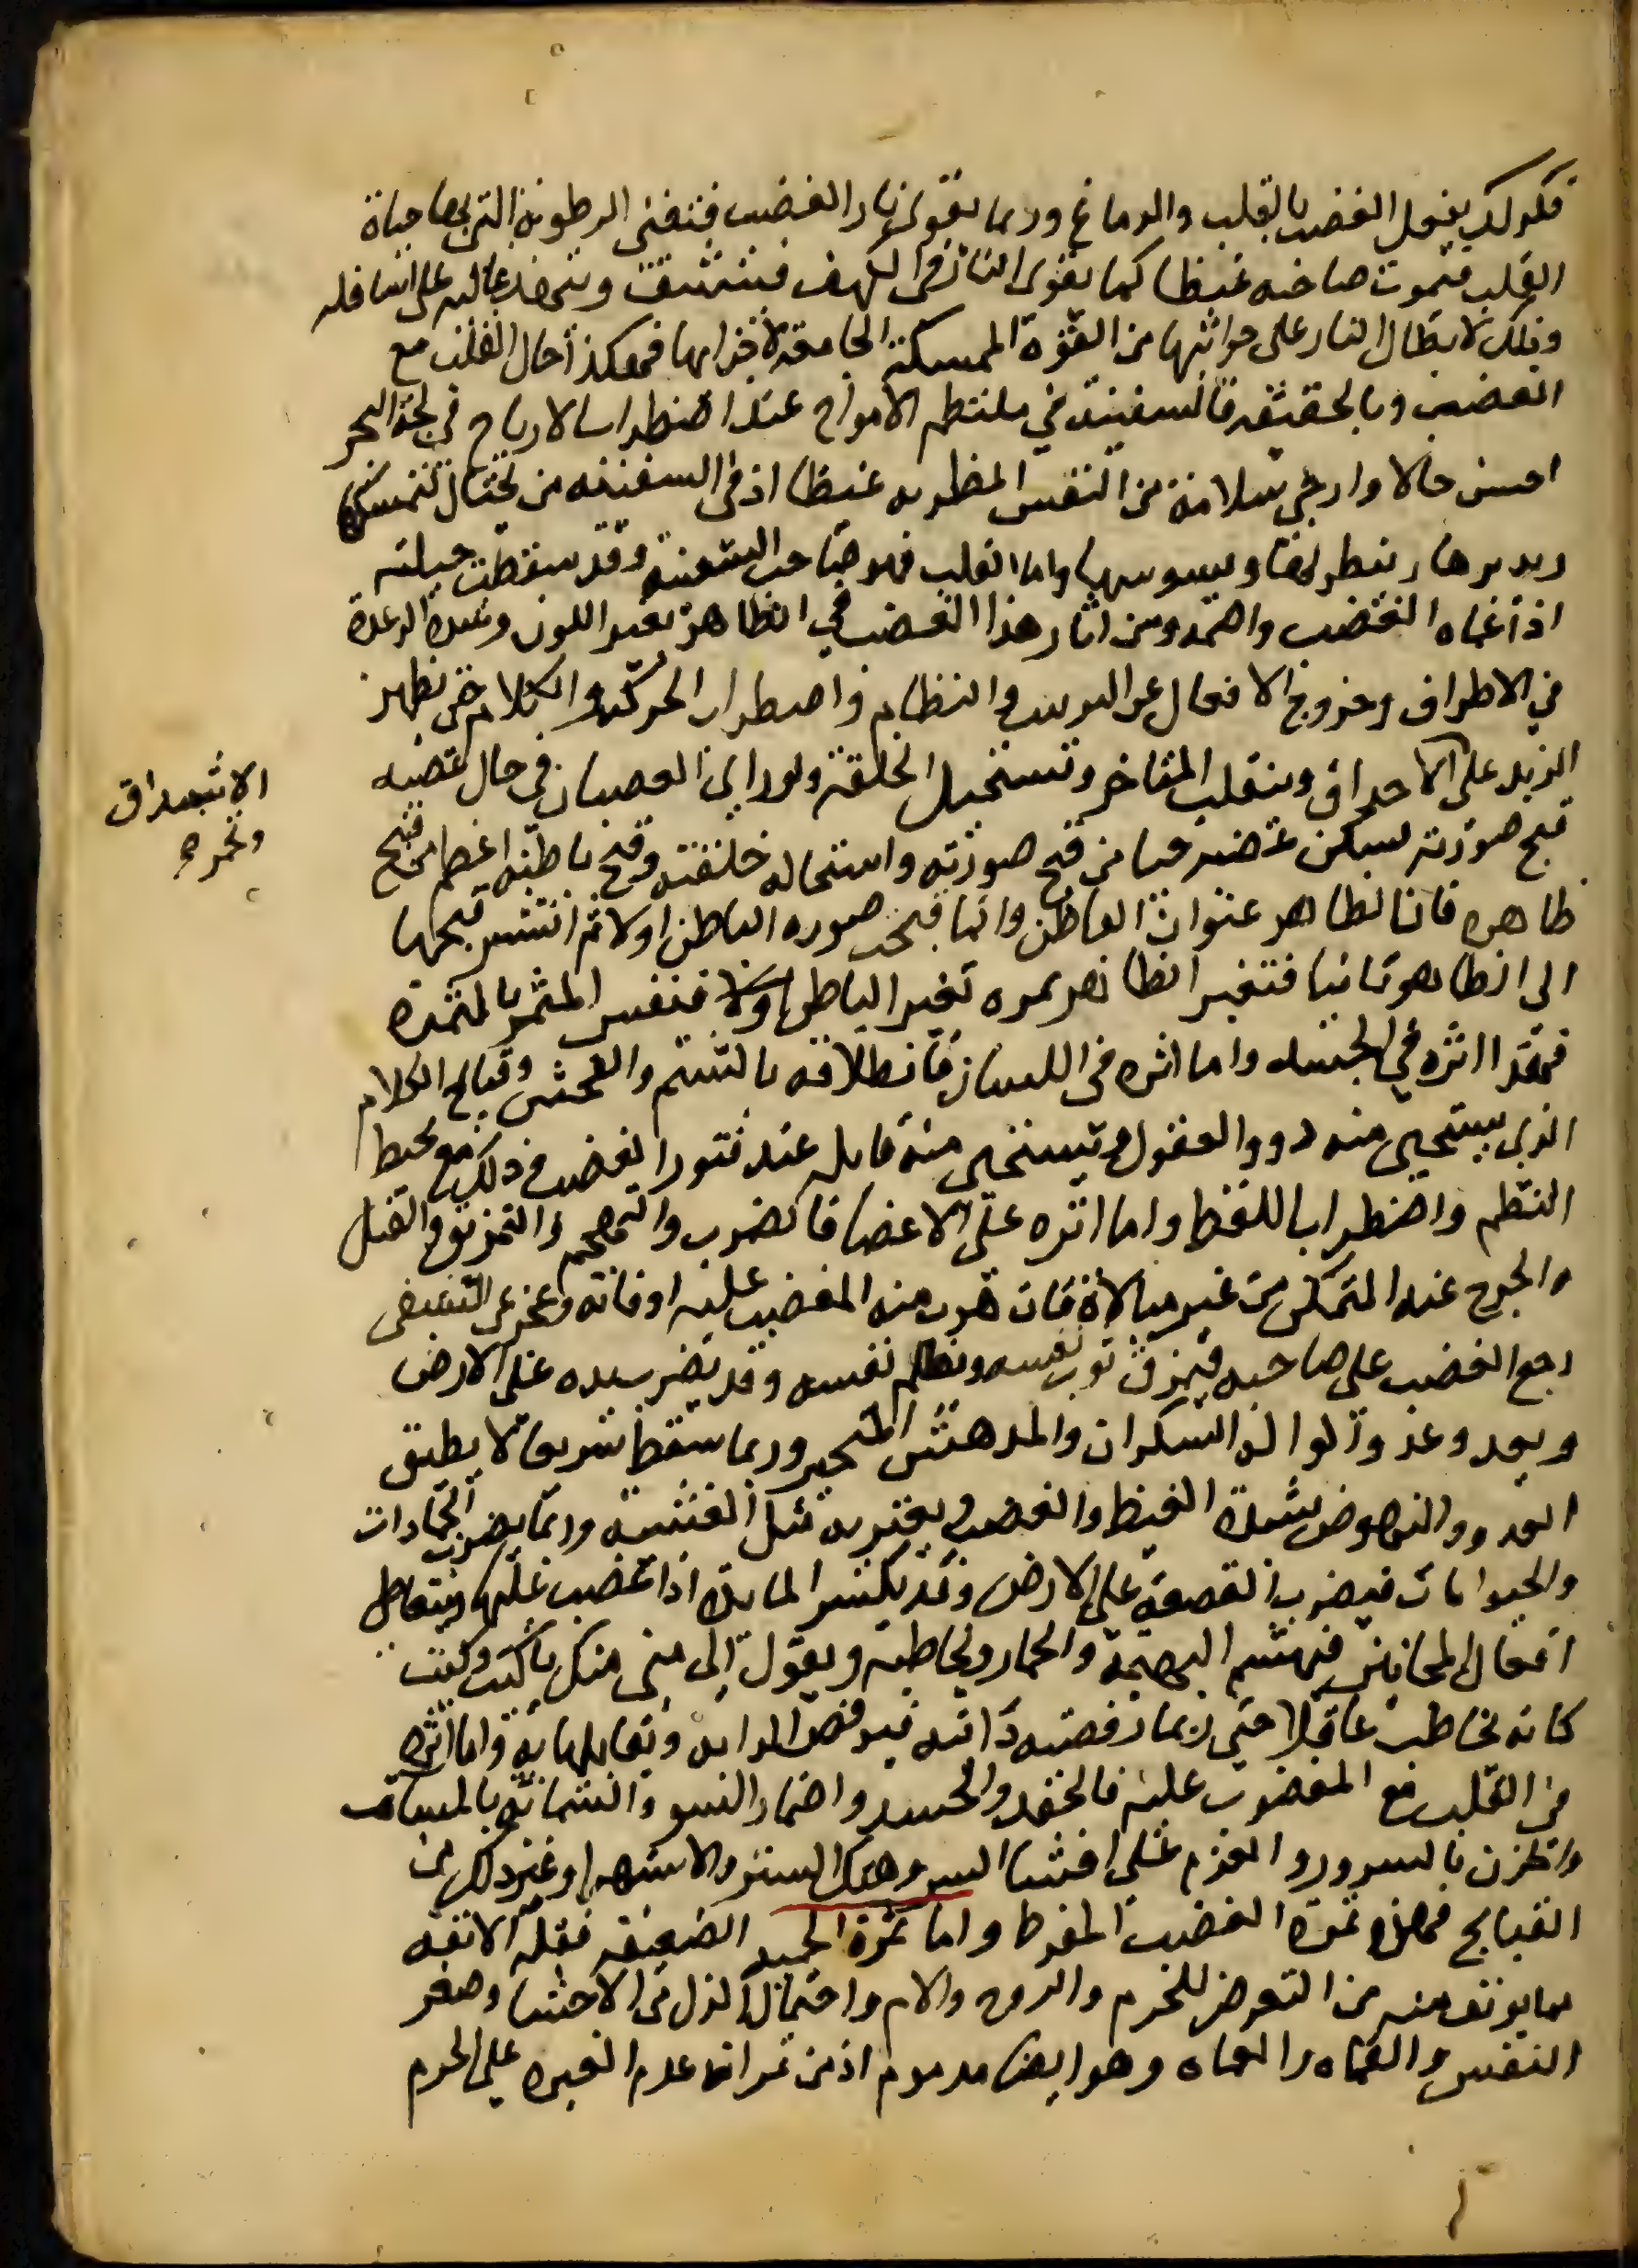 فكذلك يفعل الغضب بالقلب والدماغ وربما تقوى نار الغضب فتفنى الرطوبة التي بها حياة
القلب فيموت صاحبه غيظا كما تقوى النار في الكهف فيتشقق وتنهد اعاليه على اسافله
وذلك لابطال النار على جوانبها من القوة الممسكة الجامعة لاجزائها فهكذا حال القلب مع
الغضب وبالحقيقة فالسفينة في ملتطم الامواج عند اضطراب الارياح في لجة البحر
احسن حالا وارجى سلامة من النفس المضطربة غيظا اذ في السفينة من يحتال لتسكينها
وتدبيرها وينظر لها ويسوسها واما القلب فهو صاحب السفينة وقد سقطت حيلته
اذ اعماه الغضب واصمه ومن اثار هذا الغضب في الظاهر تغير اللون وشدة الرعدة
في الاطراف وخروج الافعال عن الترتيب والنظام واضطراب الحركة والكلام حتى يظهر
الزبد على الاشداق وتحمر الاحداق وتنقلب المناخر وتستحيل الخلقة ولو راى الغضبان في حال غضبه
قبح صورته لسكن غضبه حياء من قبح صورته واستحالة خلقته وقبح باطنه اعظم من قبح
ظاهره فان الظاهر عنوان الباطن وانما قبحت صورة الباطن اولا ثم انتشر قبحها
الى الظاهر ثانيا فتغير الظاهر ثمرة تغير الباطن اولا فنفس المثمر بالثمرة
فهذا اثره في الجسد واما اثره في اللسان فانطلاقه بالشتم والفحش وقبايح الكلام
الذي يستحيي منه ذوو العقول ويستحيي منه قايله عند فتور الغضب وذلك مع تخبط
النظم واضطراب اللفظ واما اثره على الاعضا فالضرب والتهجم والتمزيق والقتل
والجرح عند التمكن من غير مبالاة فان هرب منه المغضوب عليه او فاته وعجز عن التشفي
رجع الغضب على صاحبه فيمزق ثوب نفسه ويلطم نفسه وقد يضرب بيده على الارض
ويعدو عدو الواله السكران والمدهش المتحير وربما سقط سريعا لا يطيق
العدو والنهوض لشدة الغيظ والغضب ويعتريه مثل الغشية وربما يضرب الجمادات
والحيوانات فيضرب القصعة على الارض وقد يكسر المايدة اذا غضب عليها ويتعاطى
افعال المجانين فيشتم البهيمة والحمار ويخاطبه ويقول الى متى منك يا كيت وكيت
كانه يخاطب عاقلا حتى ربما رفسته دابته فيرفس الدابة ويقابلها به واما اثره
في القلب مع المغضوب عليه فالحقد والحسد واضمار السو والشماتة بالمساآت
والحزن بالسرور والعزم على افشا السر وهتك الستر والاستهزا وغير ذلك من
القبايح فهذه ثمرة الغضب المفرط واما ثمرة الحمية الضعيفة فقلة الانفة
مما يونف منه من التعرض للحرم والزوجة والام واحتمال الذل من الاخسا وصغر
النفس والقماه وهو ايضا مذموم اذ من ثمراته عدم الغيرة على الحرم